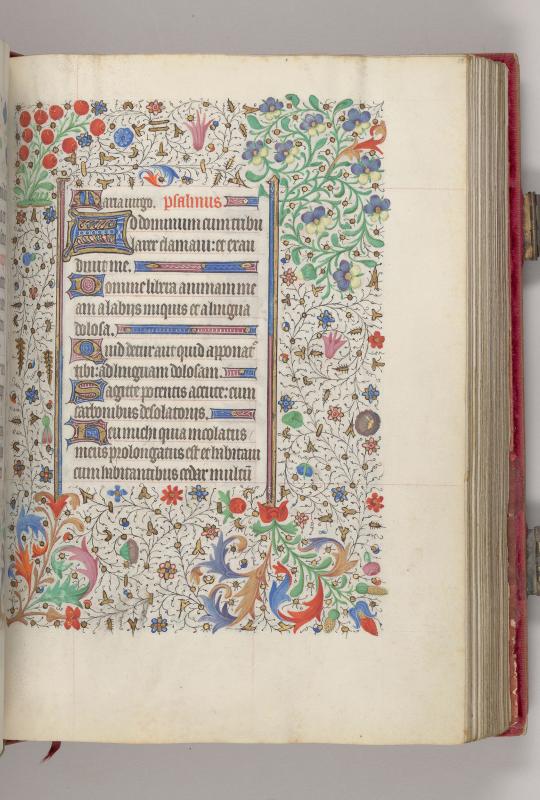 Maria uirgo. psalmus
Ad dominum cum tribu
larer clamaui: et exau
diuit me.
Domine libera animam me
am a labijs iniquis et a lingua
dolosa.
Quid detur aut quid apponat
tibi: ad linguam dolosam.
Sagitte potentis acute: cum
carbonibus desolatorijs.
Heu michi quia incolatus
meus prolongatus est habitaui
cum habitantibus cedar multū